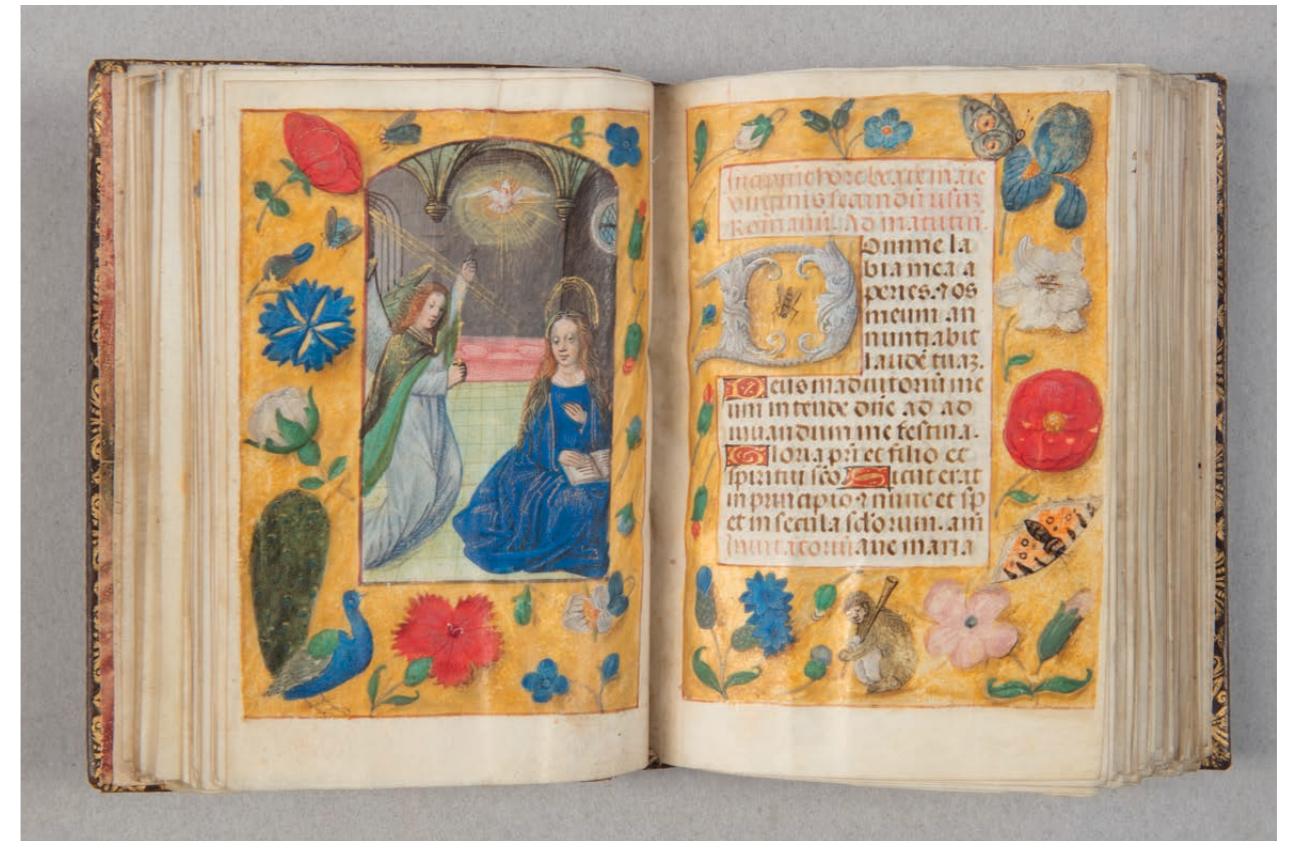 Incipiunt hore beate marie
virginis secundũ usuz
Romanũ. Ad matutiñ.
Domine la
bia mea a
peries. ⁊ os
meum an
nuntiabit
laudẽ tuaz.
Deus in adiutoriũ me
um intende dñe ad ad
iuuandum me festina.
Gloria pr̃i et filio et
spiritui sc̃o. Sicut erat
in principio ⁊ nunc et sp̃
et in secula sc̃lorum. am̃
Inuitatoriũ aue maria